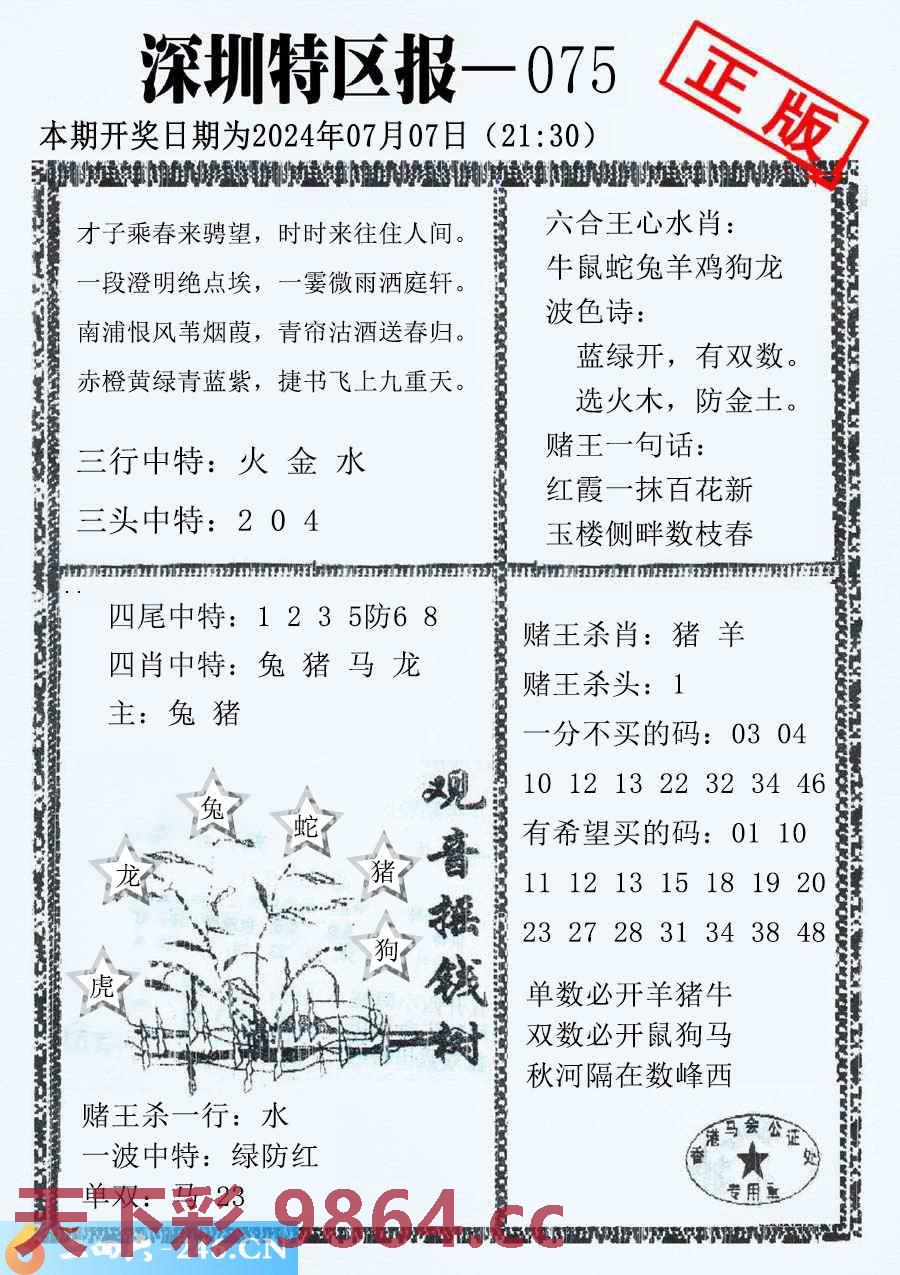 深圳特区报—075
正版
本期开奖日期为2024年07月07日（21:30）
才子乘春来骋望，时时来往住人间。
一段澄明绝点埃，一霎微雨洒庭轩。
南浦恨风苇烟葭，青帘沽酒送春归。
赤橙黄绿青蓝紫，捷书飞上九重天。
三行中特：火 金 水
三头中特：2 0 4
六合王心水肖：
牛鼠蛇兔羊鸡狗龙
波色诗：
蓝绿开，有双数。
选火木，防金土。
赌王一句话：
红霞一抹百花新
玉楼侧畔数枝春
四尾中特：1 2 3 5防6 8
四肖中特：兔 猪 马 龙
主：兔 猪
兔
蛇
龙
猪
狗
虎
观音摇钱树
赌王杀一行：水
一波中特：绿防红
单双：马 23
赌王杀肖：猪 羊
赌王杀头：1
一分不买的码：03 04
10 12 13 22 32 34 46
有希望买的码：01 10
11 12 13 15 18 19 20
23 27 28 31 34 38 48
单数必开羊猪牛
双数必开鼠狗马
秋河隔在数峰西
香港马会公证处
专用章
天下彩 9864.cc